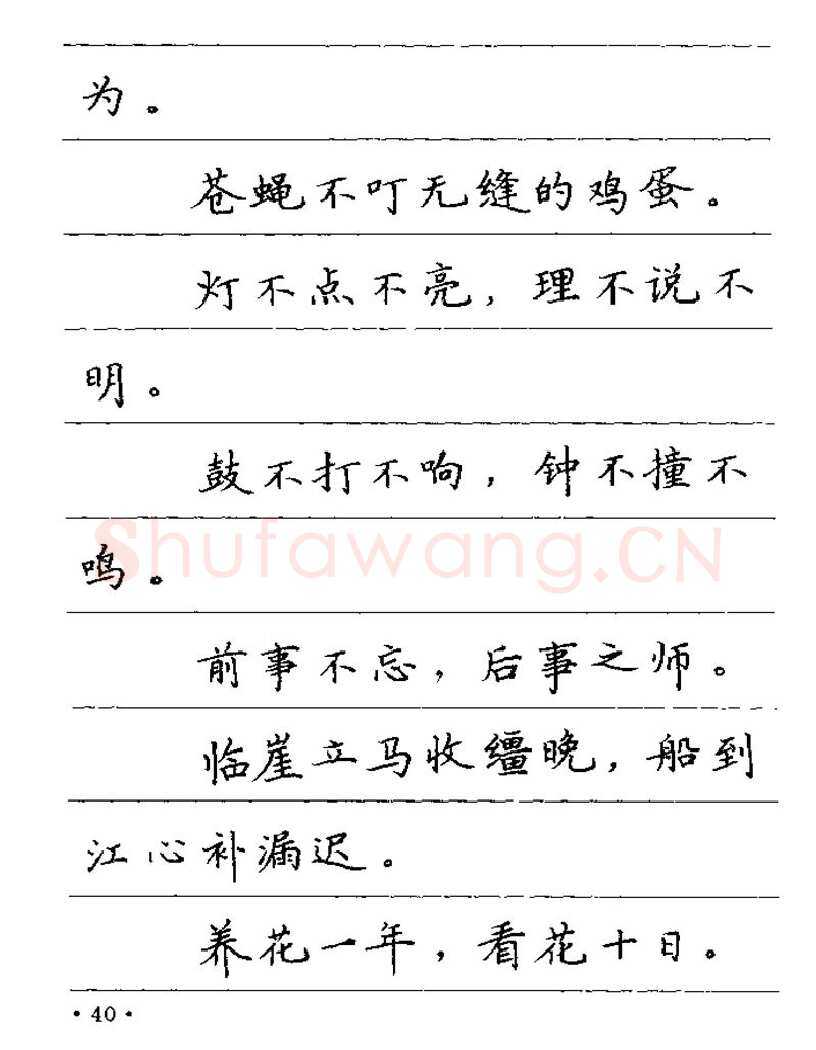 为。
苍蝇不叮无缝的鸡蛋。
灯不点不亮，理不说不
明。
鼓不打不响，钟不撞不
鸣。
Shufawang.CN
前事不忘，后事之师。
临崖立马收缰晚，船到
江心补漏迟。
养花一年，看花十日。
·40·